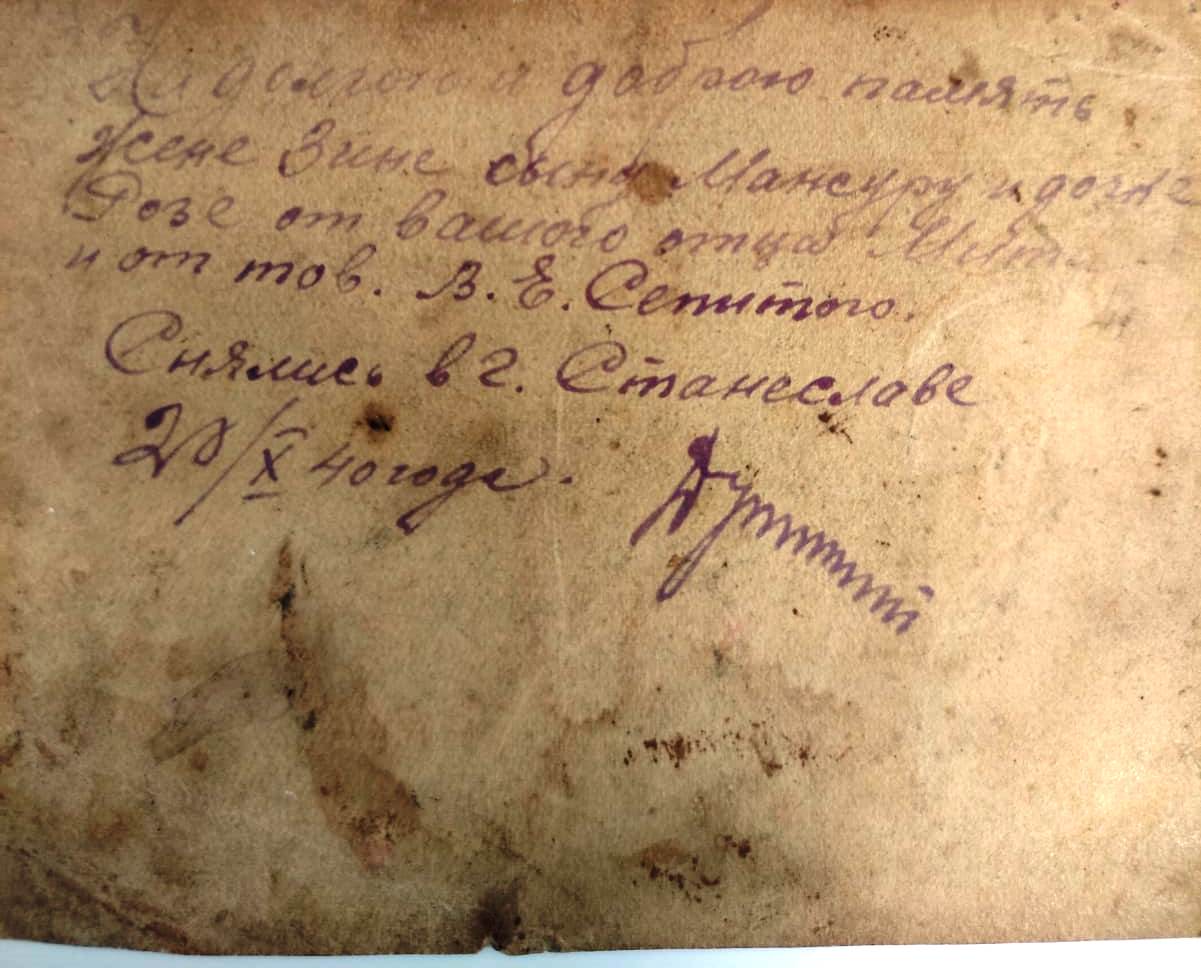 На долгою и доброю память
Жене Зине сыну Мансуру и дочке
Розе от вашого отца
и от тов. В. Е. Сепитого.
Снялись в г. Станеславе
20/X 40 года.